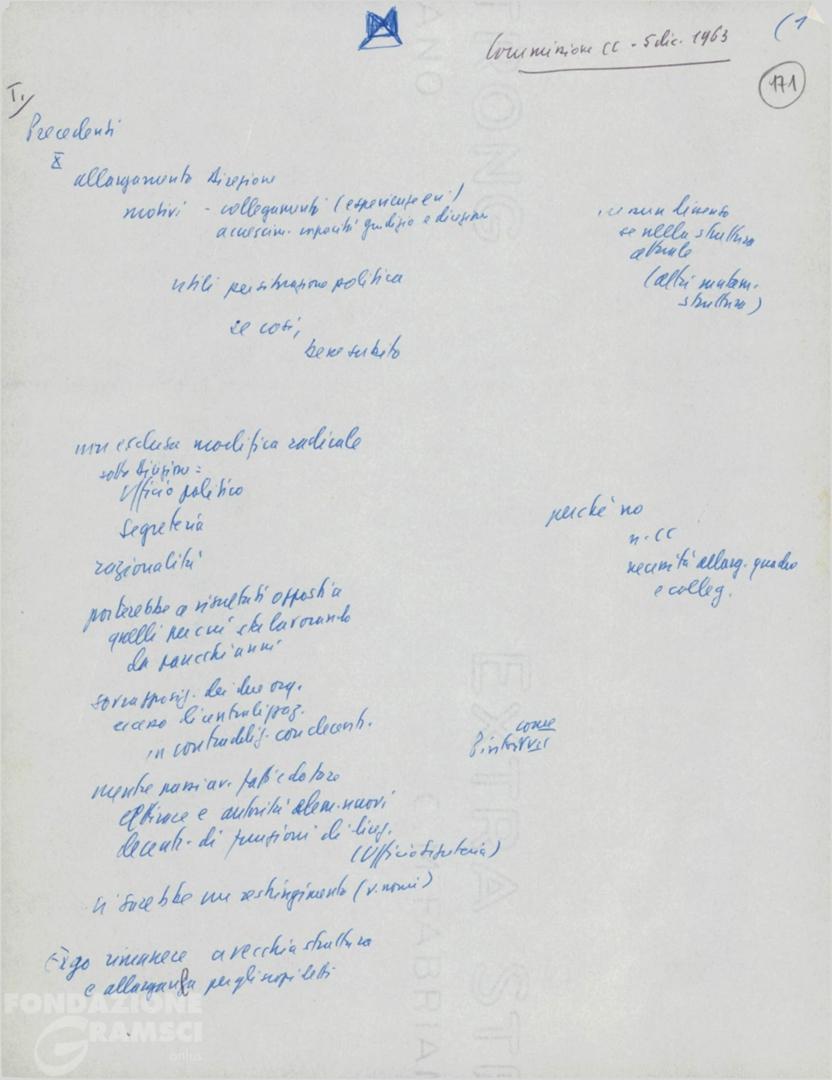 (1
Commissione CC - 5 dic. 1963
171
I.
Precedenti
X
allargamento Direzione
motivi - collegamenti (esperienze ecc)
accrescim. capacità giudizio e direzione
utili per situazione politica
se così,
bene subito
se nella struttura
attuale
(altri mutam.
struttura)
non esclusa modifica radicale
sotto Direzione:
Ufficio politico
Segreteria
razionalità
porterebbe a risultati opposti a
quelli per cui sta lavorando
da parecchi anni
sovrapposiz. dei due org.
eccesso di centralizzaz.
in contraddiz. con decent.
mentre passi av. fatti e da fare
efficace e autorità elem. nuovi
decent. di funzioni di direz.
(Ufficio Segreteria)
vi sarebbe un restringimento (v. nomi)
perché no
n. CC
necessità allarg. quadro
e colleg.
come
Ergo rimanere a vecchia struttura
e allargarla per gli scopi detti
FONDAZIONE
GRAMSCI
onlus
STRONG
EXTRA ST
FABRIAN
ANO